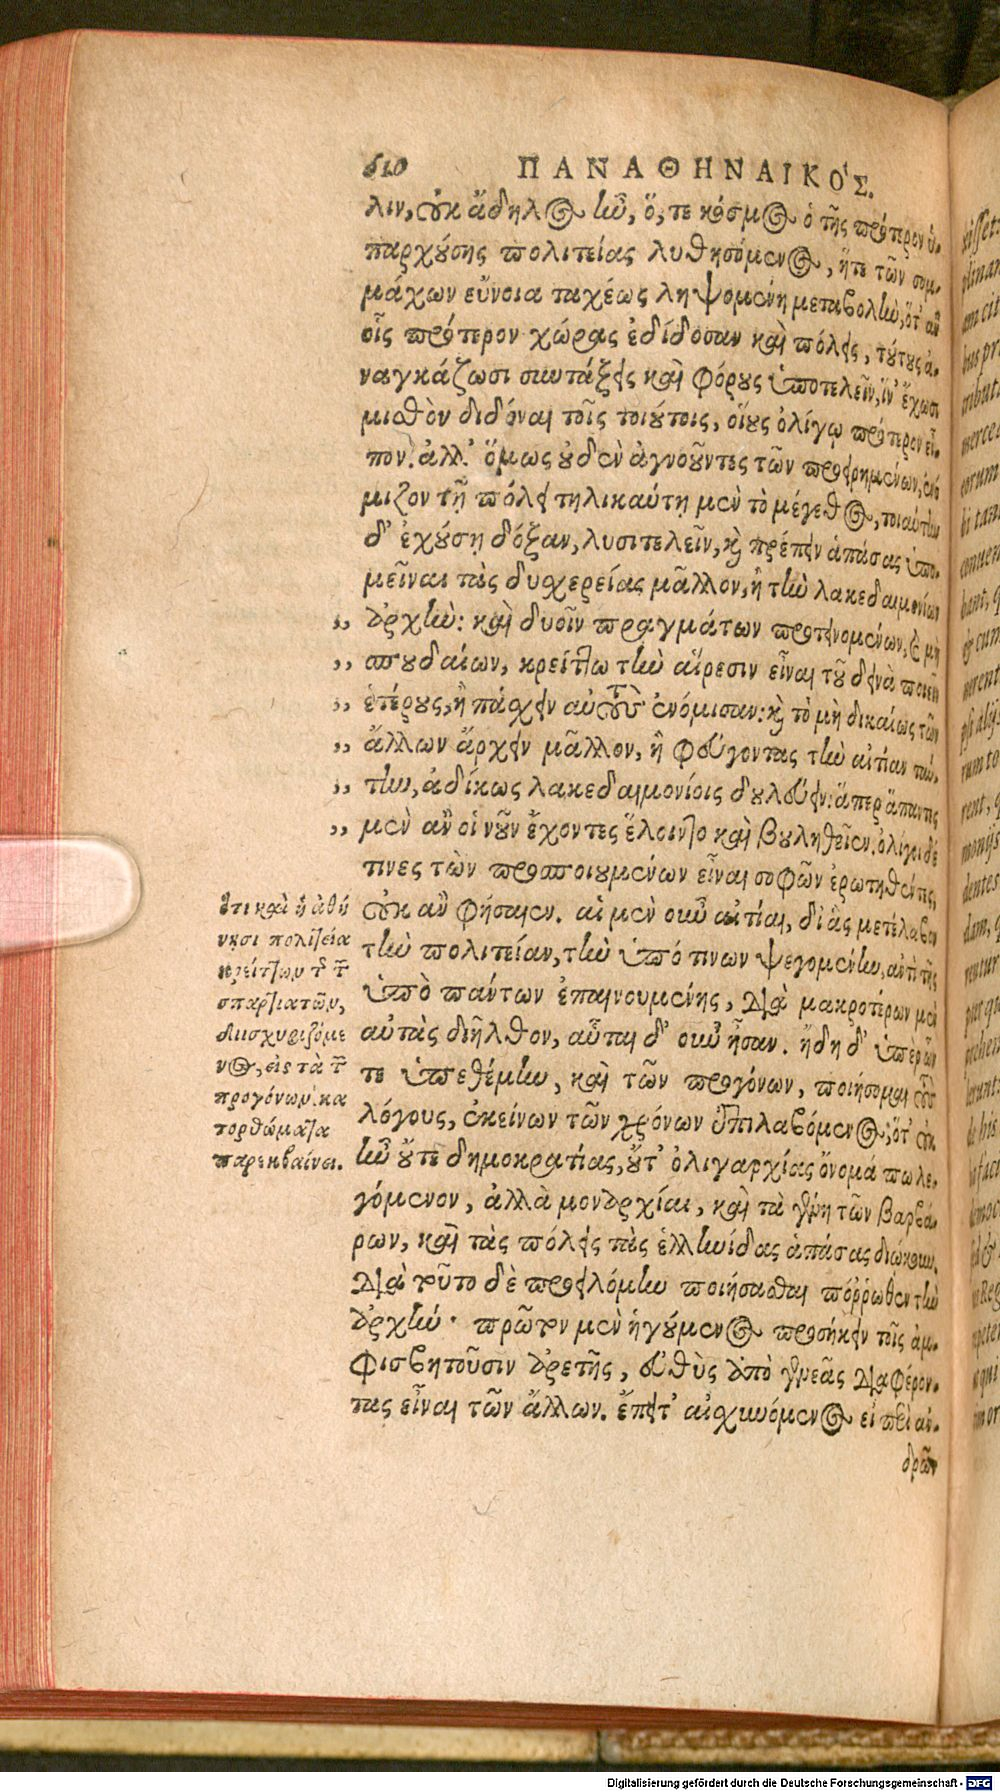 610 ΠΑΝΑΘΗΝΑΙΚΟ´Σ.
λιν, οὐκ ἄδηλος ἦν, ὅ, τε κόσμος ὁ τῆς πρότερον ὑ-
παρχούσης πολιτείας λυθησόμενος, ἥτε τῶν συμ-
μάχων εὔνοια ταχέως ληψομένη μεταβολὴν, ὅτ' ἂν
οἷς πρότερον χώρας ἐδίδοσαν καὶ πόλεις, τούτους ἀ-
ναγκάζωσι συντάξεις καὶ φόρους ὑποτελεῖν, ἵν' ἔχωσι
μισθὸν διδόναι τοῖς τοιούτοις, οἵους ὀλίγῳ πρότερον εἶ-
πον. ἀλλ' ὅμως οὐδὲν ἀγνοοῦντες τῶν προειρημένων, ἐνό
μιζον τῇ πόλει τηλικαύτῃ μὲν τὸ μέγεθος, τοιαύτην
δ' ἐχούσῃ δόξαν, λυσιτελεῖν, καὶ πρέπειν ἁπάσας ὑπο-
μεῖναι τὰς δυσχερείας μᾶλλον, ἢ τὴν λακεδαιμονίων
,, ἀρχὴν: καὶ δυοῖν πραγμάτων προτεινομένων, καὶ μὴ
,, σπουδαίων, κρείττω τὴν αἵρεσιν εἶναι τοῦ δεινὰ ποιεῖν
,, ἑτέρους, ἢ πάσχειν αὐτοὺς ἐνόμισαν: καὶ τὸ μὴ δικαίως τῶν
,, ἄλλων ἄρχειν μᾶλλον, ἢ φεύγοντας τὴν αἰτίαν ταύ-
,, την, ἀδίκως λακεδαιμονίοις δουλεύειν: ἅπερ ἅπαντες
,, μὲν ἂν οἱ νοῦν ἔχοντες ἕλοιντο καὶ βουληθεῖεν. ὀλίγοι δέ
τινες τῶν προσποιουμένων εἶναι σοφῶν ἐρωτηθέντες,
οὐκ ἂν φήσαιεν. αἱ μὲν οὖν αἰτίαι, δι' ἃς μετέλαβον
τὴν πολιτείαν, τὴν ὑπό τινων ψεγομένην, ἀντὶ τῆς
ὑπὸ πάντων ἐπαινουμένης, διὰ μακροτέρων μὲν
αὐτὰς διῆλθον, αὗται δ' οὖν ἦσαν. ἤδη δ' ὑπὲρ ὧν
τε ὑπεθέμην, καὶ τῶν προγόνων, ποιήσομαι τοὺς
λόγους, ἐκείνων τῶν χρόνων ἐπιλαβόμενος, ὅτ' οὐκ
ἦν οὔτε δημοκρατίας, οὔτ' ὀλιγαρχίας ὄνομά πω λε-
γόμενον, ἀλλὰ μοναρχίαι, καὶ τὰ γένη τῶν βαρβά-
ρων, καὶ τὰς πόλεις τὰς ἑλληνίδας ἁπάσας διώκουν.
διὰ τοῦτο δὲ προειλόμην ποιήσασθαι πόῤῥωθεν τὴν
ἀρχήν· πρῶτον μὲν ἡγούμενος προσήκειν τοῖς ἀμ-
φισβητοῦσιν ἀρετῆς, εὐθὺς ἀπὸ γενεᾶς διαφέρον-
τας εἶναι τῶν ἄλλων. ἔπειτ' αἰσχυνόμενος εἰ περὶ ἀν-
δρῶν
ὅτι καὶ ἡ ἀθή
νῃσι πολιτεία
κρείττων τ τ
σπαρτιατῶν,
διισχυριζόμε
νος, εἰς τὰ τ
προγόνων κα
τορθώματα
παρεκβαίνει.
Digitalisierung gefördert durch die Deutsche Forschungsgemeinschaft - DFG